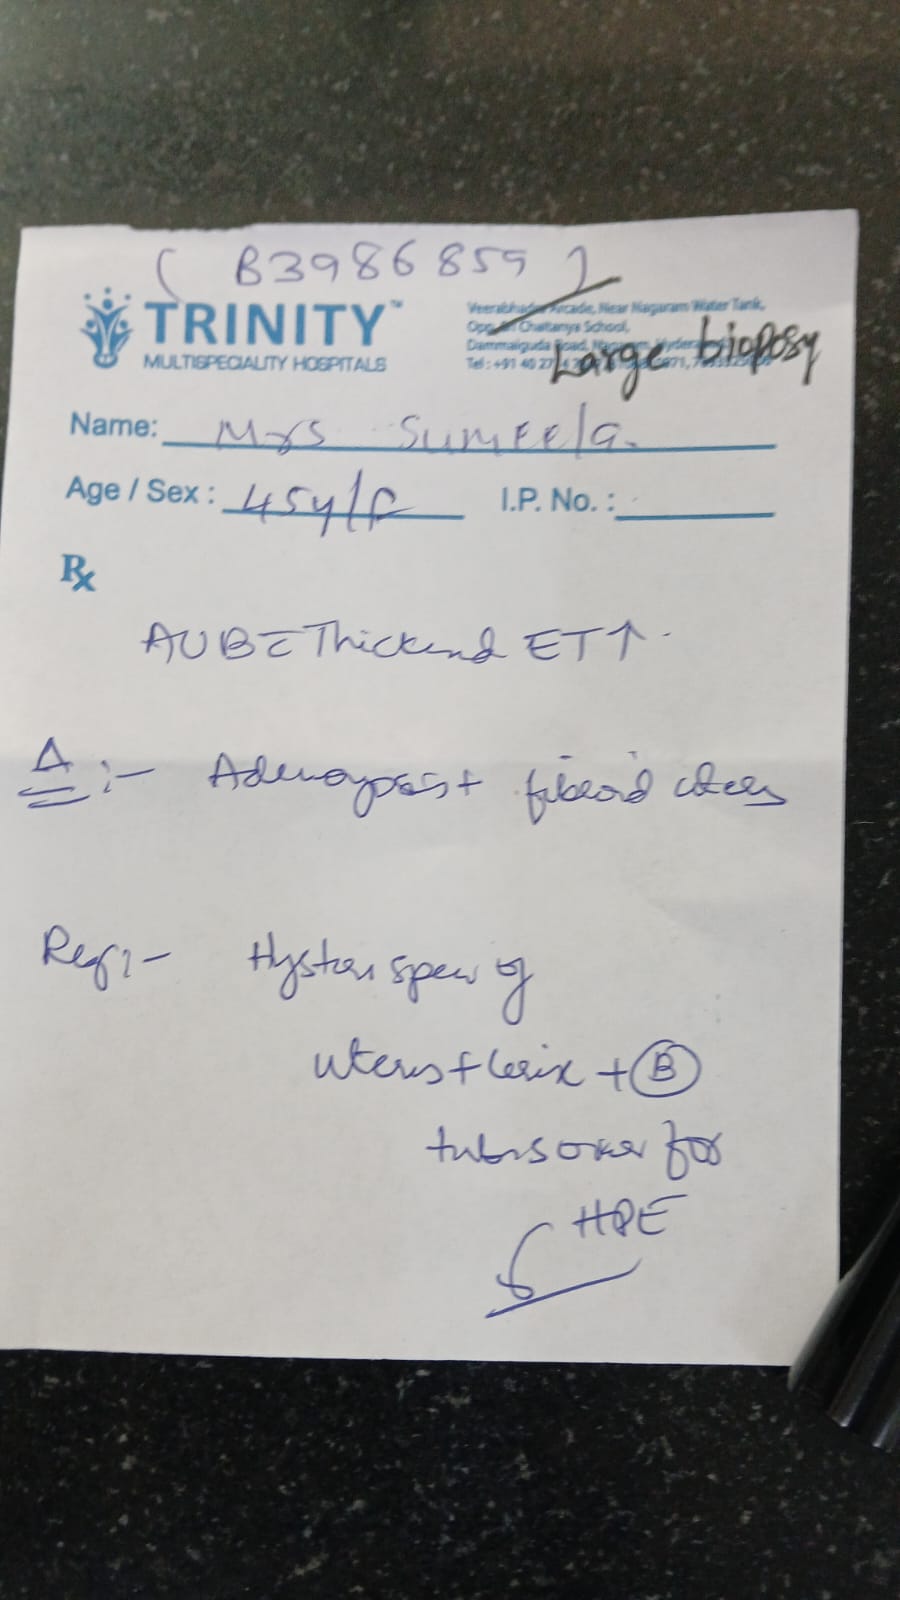 ( B3986859 )
TRINITY™
MULTISPECIALITY HOSPITALS
Veerabhadra Arcade, Near Nagaram Water Tank,
Opp. Sri Chaitanya School,
Dammaiguda Road, Nagaram, Hyderabad
Tel : +91 40 27
Large bioposy
Name: Mrs Sumeela.
Age / Sex : 45y/F I.P. No. :
Rx
AUB c̄ Thickend ET↑.
Δ :- fibroid uterus
Req:- Hyster spec of
uterus + Cervix + Ⓑ
tubes for
HPE